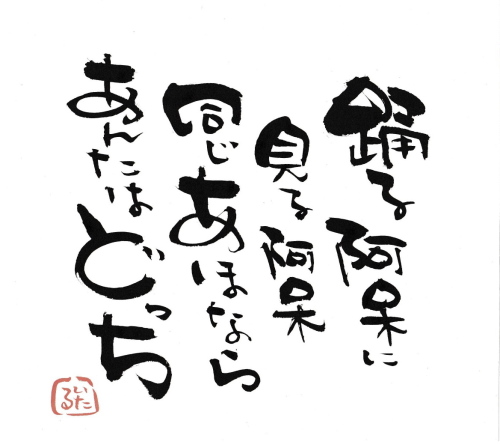 踊る阿呆に
見る阿呆
同じあほなら
あんたはどっち